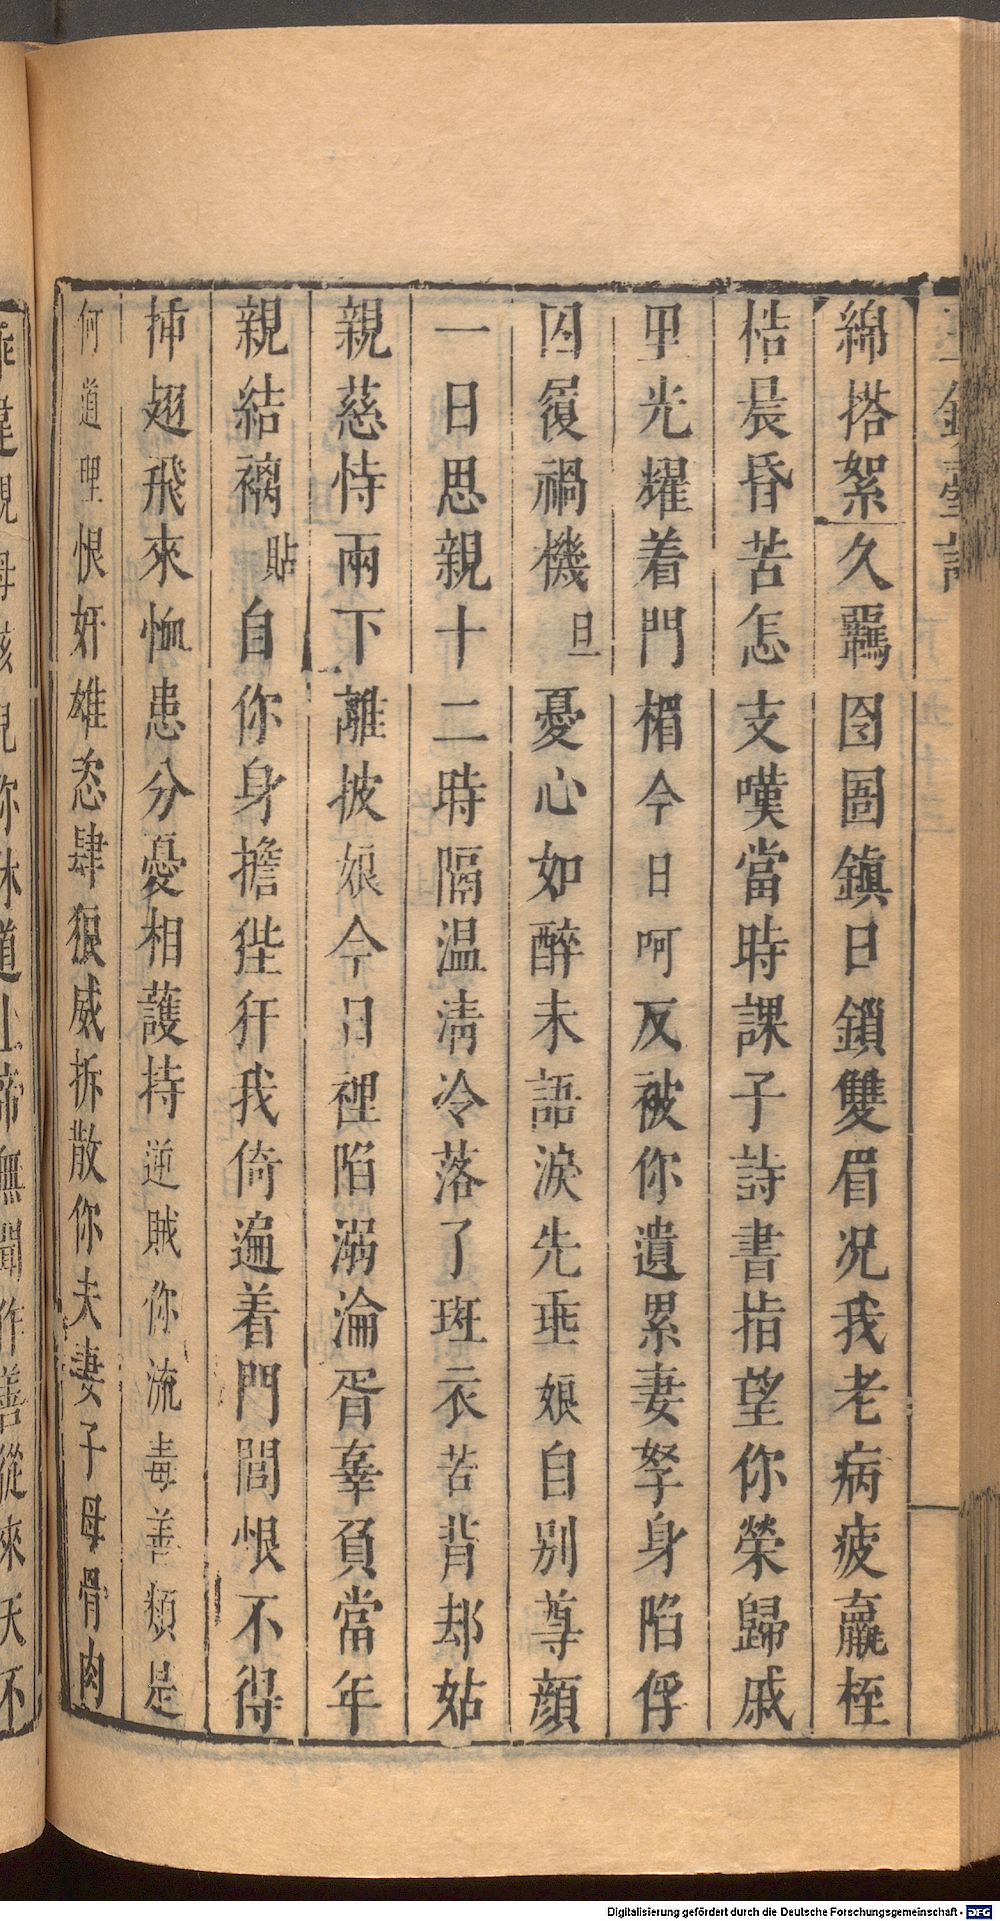 綿搭絮久羈囹圄鎮日鎖雙眉况我老病疲羸桎
梏晨昏苦怎支嘆當時課子詩書指望你榮歸戚
里光耀着門楣今日呵反被你遺累妻孥身陷俘
囚履禍機旦憂心如醉未語淚先垂娘自别尊顔
一日思親十二時隔温凊冷落了斑衣苦背却姑
親慈恃兩下離披娘今日裡陷溺淪胥辜負當年
親結褵貼自你身擔狴犴我倚遍着門閭恨不得
揷翅飛來恤患分憂相護持逆賊你流毒善類是
何道理恨奸雄恣肆狠威拆散你夫妻子母骨肉
Digitalisierung gefördert durch die Deutsche Forschungsgemeinschaft - DFG